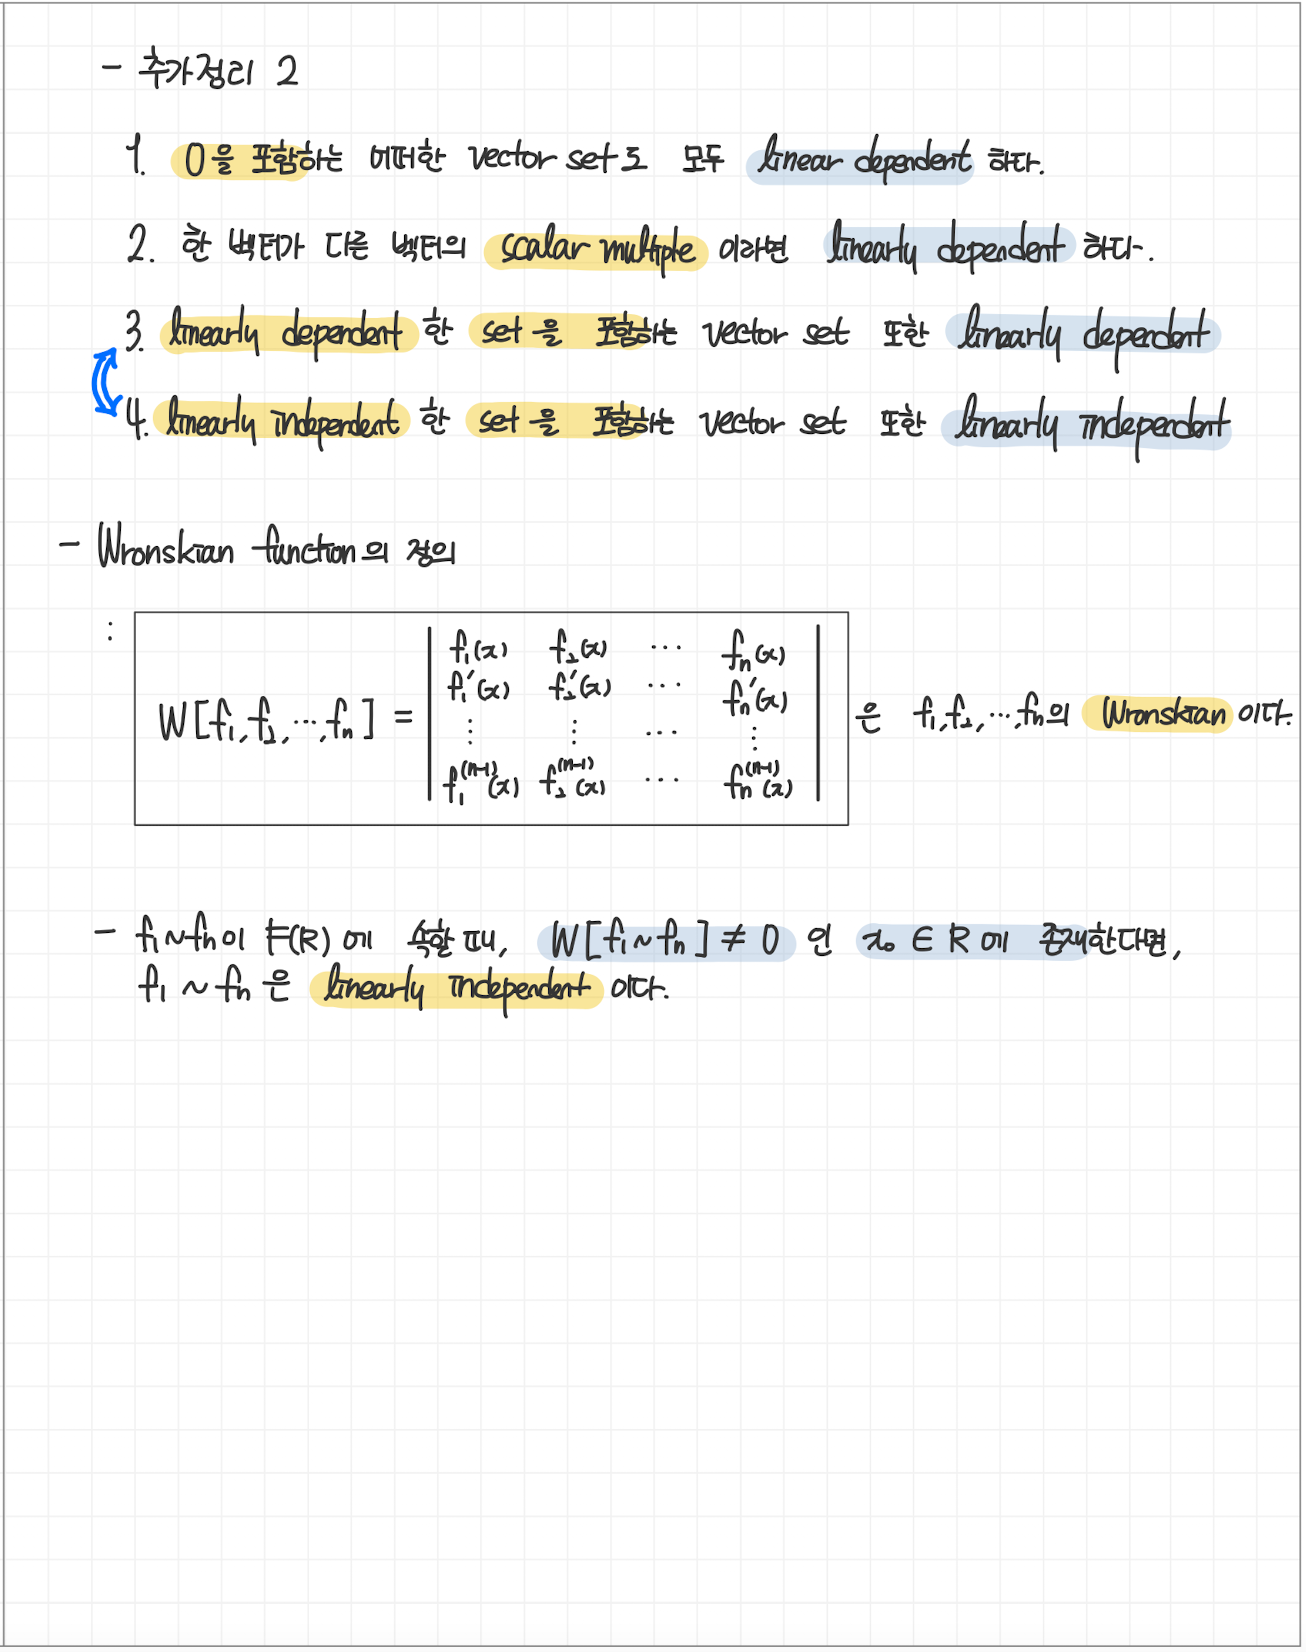 - 추가정리 2
1. 0을 포함하는 어떠한 vector set도 모두 linear dependent 하다.
2. 한 벡터가 다른 벡터의 scalar multiple 이라면 linearly dependent 하다.
3. linearly dependent 한 set을 포함하는 vector set 또한 linearly dependent
4. linearly independent 한 set을 포함하는 vector set 또한 linearly independent
- Wronskian function의 정의
:
f₁(x) f₂(x) ⋯ fₙ(x)
f₁'(x) f₂'(x) ⋯ fₙ'(x)
W[f₁,f₂,⋯,fₙ] = ⋮ ⋮ ⋯ ⋮ 은 f₁,f₂,⋯,fₙ의 Wronskian이다.
f₁⁽ⁿ⁻¹⁾(x) f₂⁽ⁿ⁻¹⁾(x) ⋯ fₙ⁽ⁿ⁻¹⁾(x)
- f₁~fₙ이 F(R)에 속할 때, W[f₁~fₙ] ≠ 0 인 x₀ ∈ R에 존재한다면,
f₁ ~ fₙ 은 linearly independent 이다.